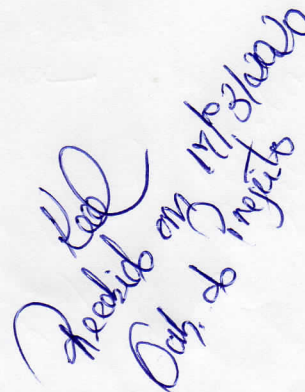 Recebido em 17/03/2020
Gab. do Prefeito